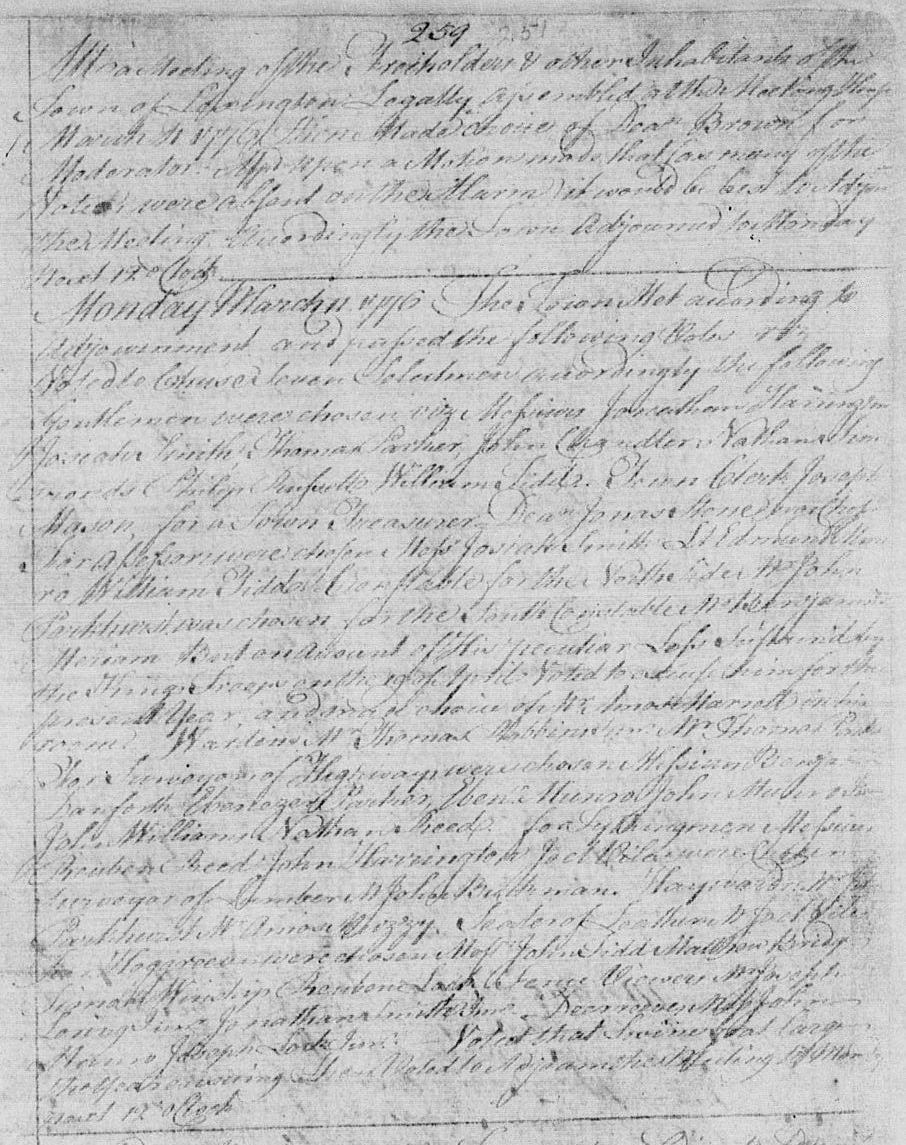 259 251
Att a Meeting of the Freeholders & other Inhabitants of the
Town of Lexington Legally assembled at the Meeting House
March 4 1776 Then Made choice of Dean Brown for
Moderator. upon a Motion made that as many of the
Voters were absent on the Alarm it would be best to Adjourn
the Meeting. Acordingly the Town Adjourned to Monday
Next 12 oClock
Monday March 11 1776 The Town Met acording to
Adjournment and passed the following Votes viz
Voted to Chuse Seven Selectmen acordingly the following
Gentlemen were chosen viz Messieurs Jonathan Harrington
Josiah Smith Thomas Parker John Chandler Nathan Sim
monds Philip Russell William Tidd. Town Clerk Joseph
Mason, for a Town Treasurer Dean Jonas Stone was Chosen
For Assessors were chosen Messrs Josiah Smith Lt Edmund Mun
ro William Tidd Constable for the North Side Mr John
Parkhurst was chosen for the South Constable Mr Benjamin
Meriam But on account of His peculiar Loss Sustained by
the Kings Troops on the 19 of April Voted to excuse him for the
present Year, and made choice of Mr Amos Marrett in his
room. Wardens Mr Thomas Robbins Mr Thomas
For Surveyors of Highways were chosen Messieurs Benja
Danforth Ebenezer Parker, Eben Munro John Munro
John Williams Nathan Reed. for Tythingmen Messieurs
Reuben Reed John Harrington Joel Viles were Chosen
Surveyor of Lumber Mr John Bridge Haywards Mr
Parkhurst Mr Amos Muzzy. Sealer of Leather Mr Joel Viles
For Hogreeves were chosen Messrs John Tidd Matthew Bridge
Simon Winship Reuben Lock Fence Viewers Mr Joseph
Loring Junr Jonathan Smith Junr Deer reeves Messrs John
Munro Joseph Lock Junr Voted that Swine go at large
the Year ensuing Then Voted to Adjourn the Meeting to Mon
next 12 oClock